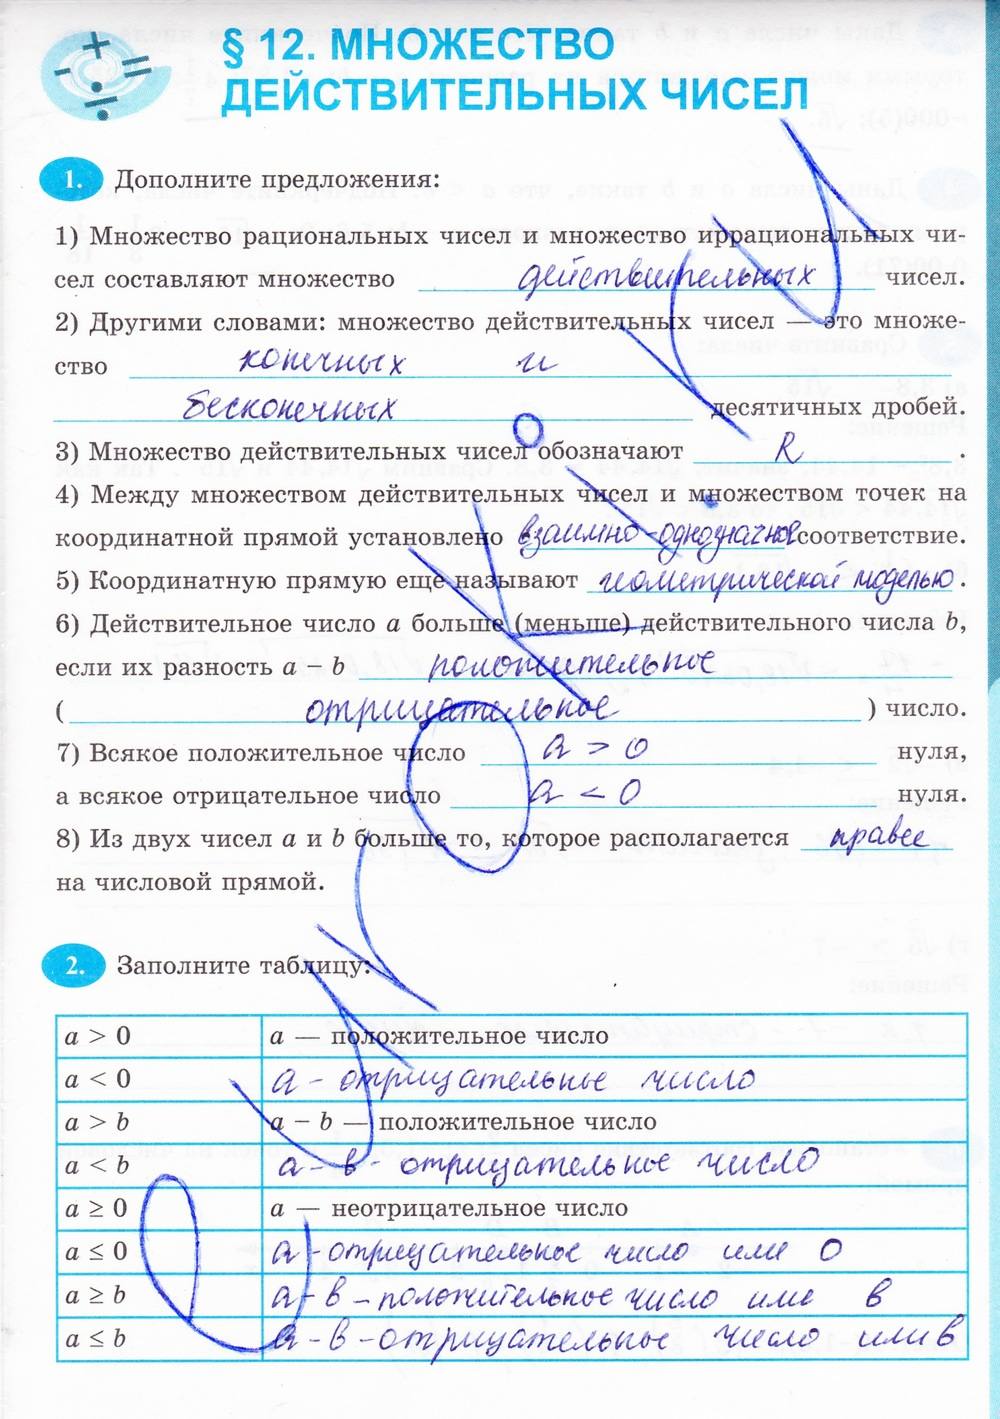 § 12. МНОЖЕСТВО
ДЕЙСТВИТЕЛЬНЫХ ЧИСЕЛ
1. Дополните предложения:
1) Множество рациональных чисел и множество иррациональных чи-
сел составляют множество действительных чисел.
2) Другими словами: множество действительных чисел — это множе-
ство конечных и
бесконечных десятичных дробей.
3) Множество действительных чисел обозначают R .
4) Между множеством действительных чисел и множеством точек на
координатной прямой установлено взаимно-однозначное соответствие.
5) Координатную прямую еще называют геометрической моделью.
6) Действительное число a больше (меньше) действительного числа b,
если их разность a − b положительное
( отрицательное ) число.
7) Всякое положительное число a > 0 нуля,
а всякое отрицательное число a < 0 нуля.
8) Из двух чисел a и b больше то, которое располагается правее
на числовой прямой.
2. Заполните таблицу:
a > 0 a — положительное число
a < 0 a - отрицательное число
a > b a − b — положительное число
a < b a - в - отрицательное число
a ≥ 0 a — неотрицательное число
a ≤ 0 a - отрицательное число или 0
a ≥ b a - в - положительное число или в
a ≤ b a - в - отрицательное число или в